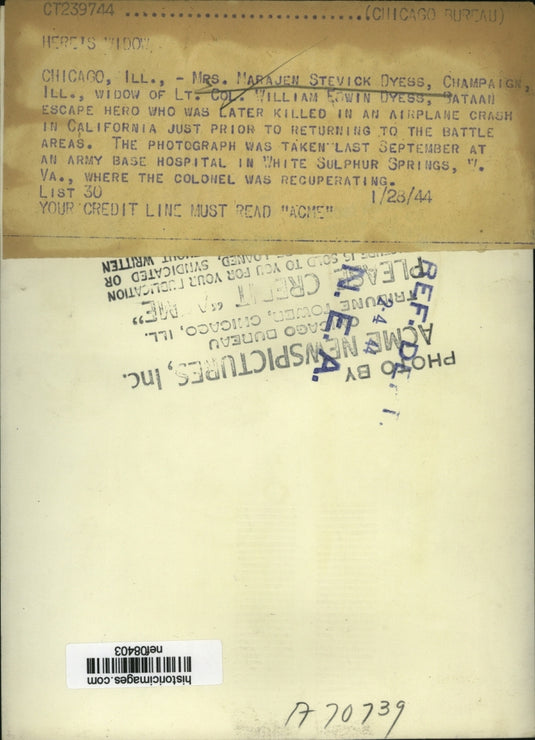 CT239744 ................................(CHICAGO BUREAU)
HERE'S WIDOW
CHICAGO, ILL., - MRS. MARAJEN STEVICK DYESS, CHAMPAIGN,
ILL., WIDOW OF LT. COL. WILLIAM EDWIN DYESS, BATAAN
ESCAPE HERO WHO WAS LATER KILLED IN AN AIRPLANE CRASH
IN CALIFORNIA JUST PRIOR TO RETURNING TO THE BATTLE
AREAS. THE PHOTOGRAPH WAS TAKEN LAST SEPTEMBER AT
AN ARMY BASE HOSPITAL IN WHITE SULPHUR SPRINGS, W.
VA., WHERE THE COLONEL WAS RECUPERATING.
LIST 30 1/28/44
YOUR CREDIT LINE MUST READ "ACME"
PHOTO BY
ACME NEWSPICTURES, Inc.
CHICAGO BUREAU
TRIBUNE TOWER, CHICAGO, ILL.
PLEASE CREDIT "ACME"
PICTURE IS SOLD TO YOU FOR YOUR PUBLICATION
LOANED, SYNDICATED OR
WITHOUT WRITTEN
REF. DEPT.
N.E.A.
historicimages.com
nef08403
A70739